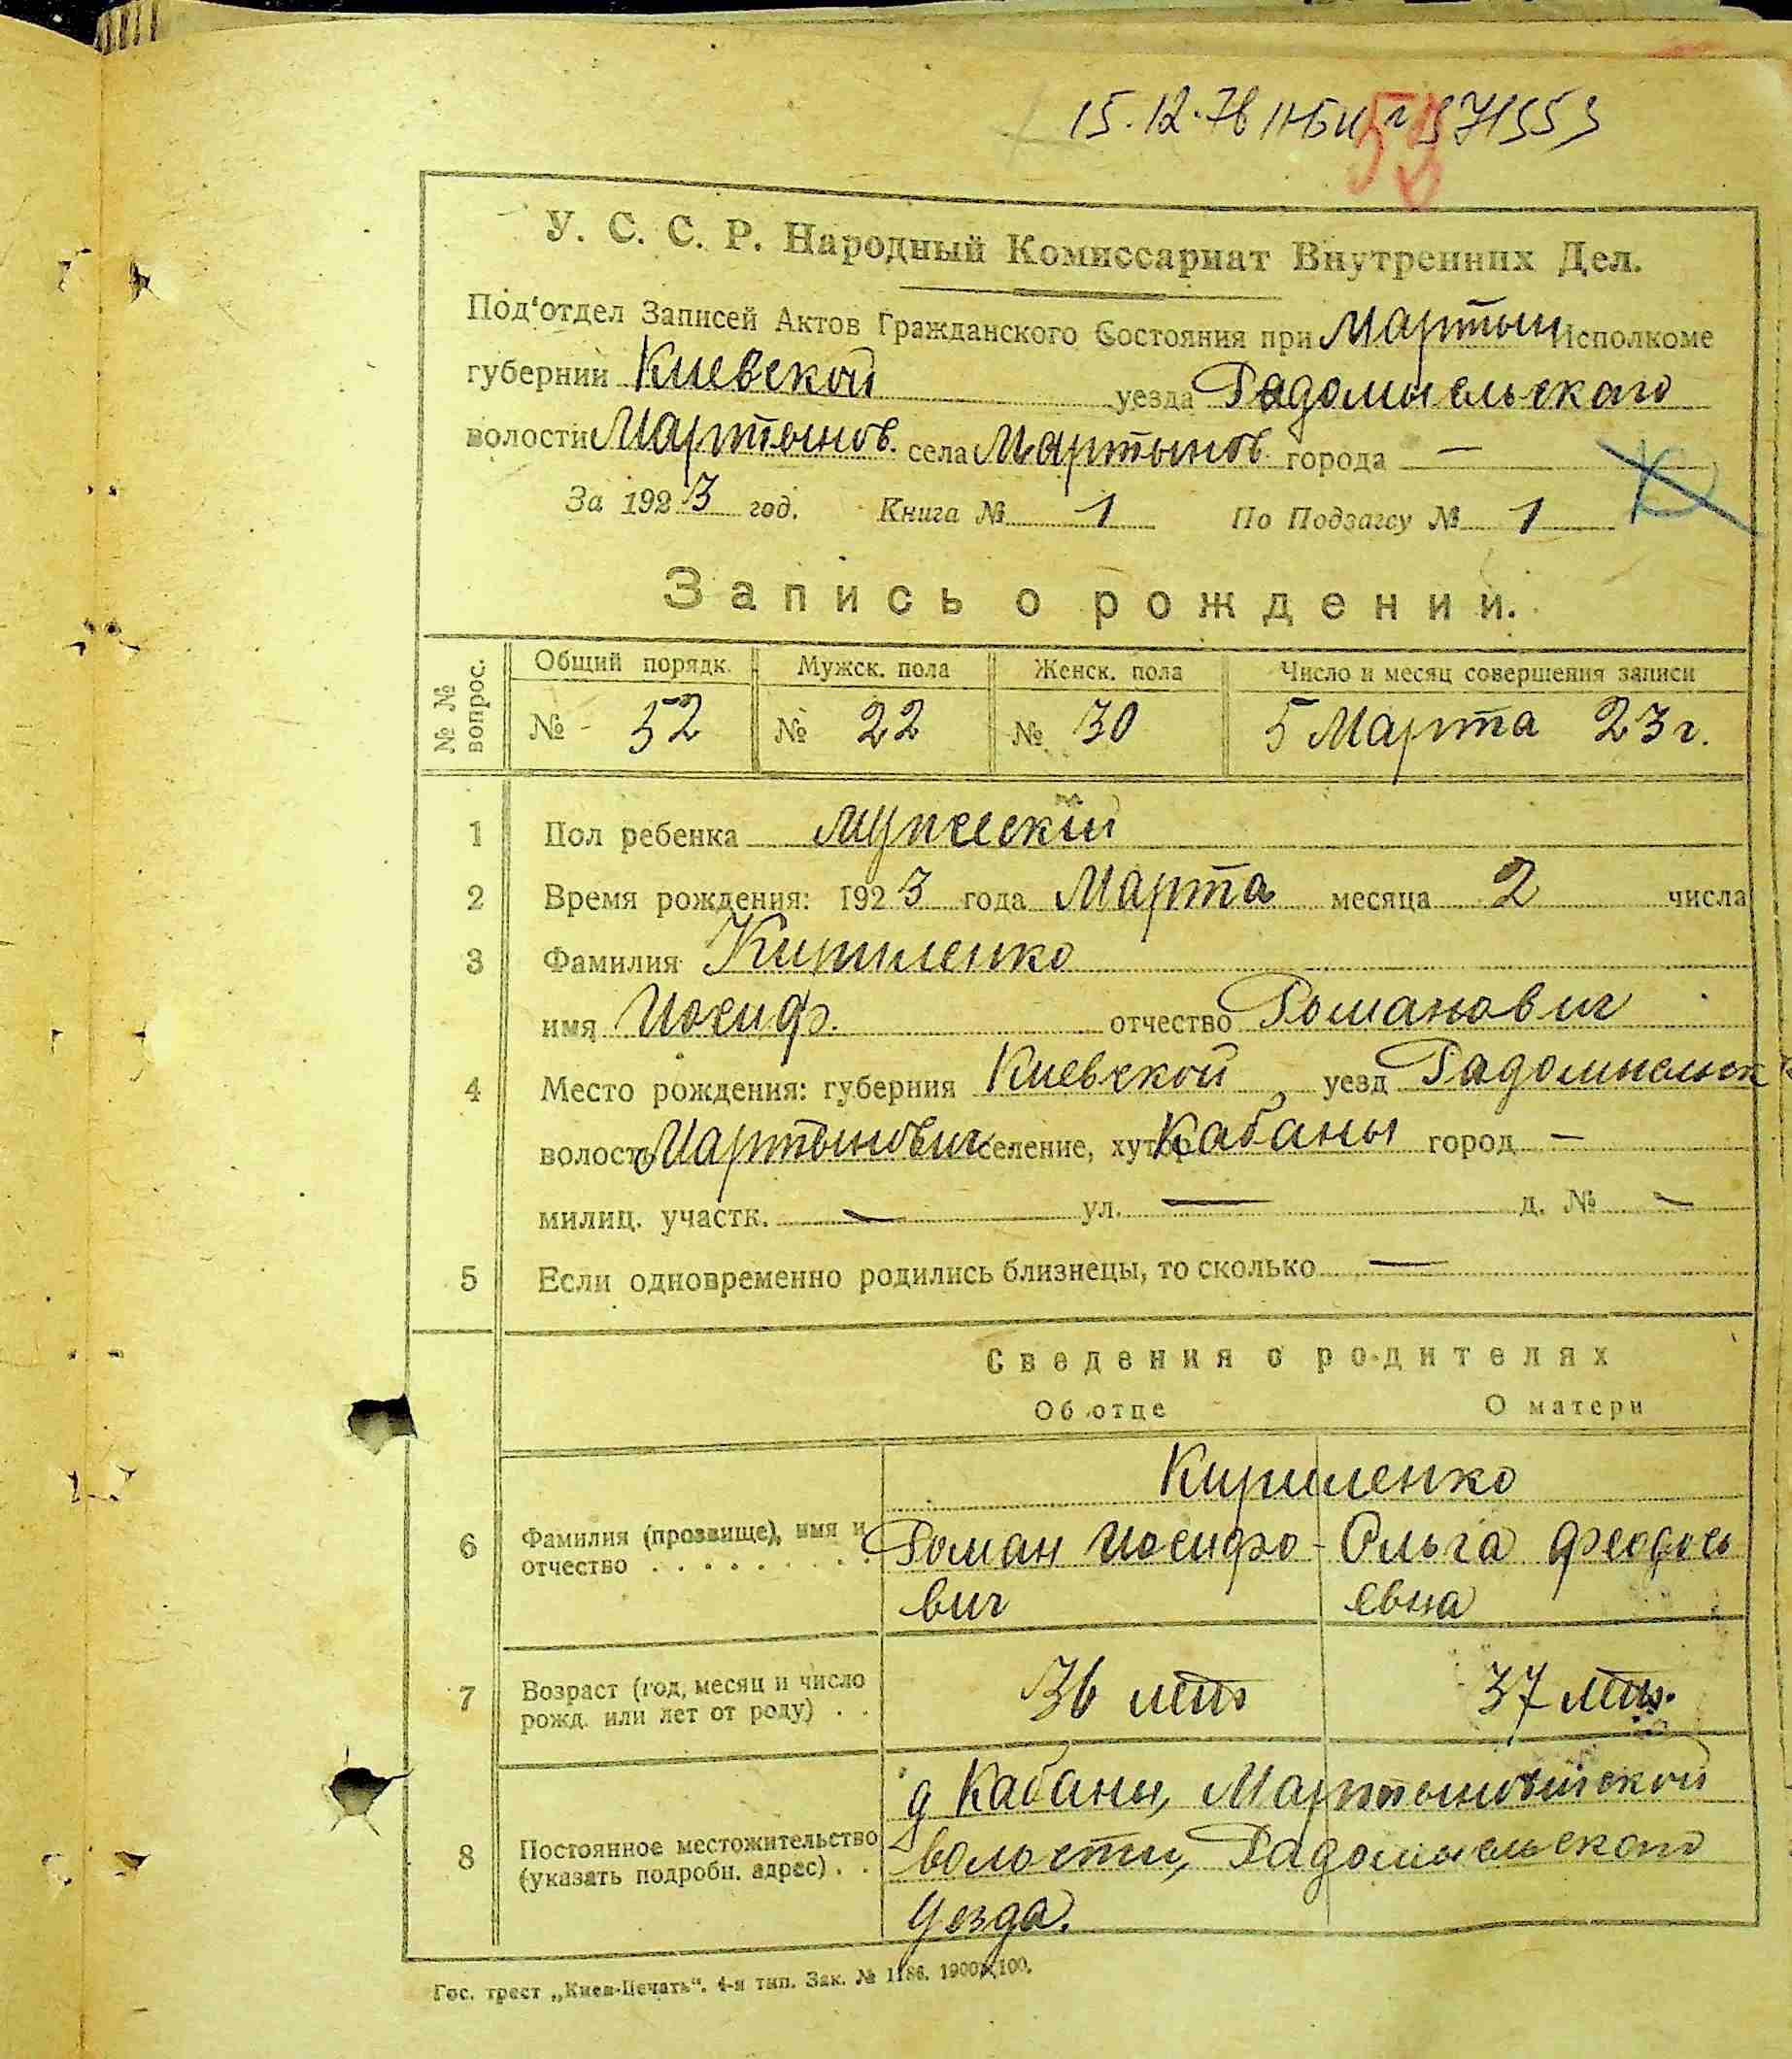 15.12.78
У. С. С. Р. Народный Комиссариат Внутренних Дел.
Под'отдел Записей Актов Гражданского Состояния при Мартын Исполкоме
губернии Киевской уезда Радомысльскаго
волости Мартынов. села Мартынов. города —
За 1923 год. Книга № 1 По Подзагсу № 1
Запись о рождении.
№ № вопрос. Общий порядк. Мужск. пола Женск. пола Число и месяц совершения записи
№ 52 № 22 № 30 5 Марта 23 г.
1 Пол ребенка мужескій
2 Время рождения: 1923 года Марта месяца 2 числа
3 Фамилия Кириленко
имя Иосиф. отчество Романович
4 Место рождения: губерния Киевской уезд Радомысльск
волость Мартынович селение, хутор Кабаны город —
милиц. участк. — ул. — д. № —
5 Если одновременно родились близнецы, то сколько —
Сведения о родителях
Об отце О матери
Кириленко
6 Фамилия (прозвище), имя и Роман Иосифо- Ольга Феодось
отчество . . . . . . . . . вич евна
7 Возраст (год, месяц и число 36 лет 37 лет.
рожд. или лет от роду) . .
д Кабаны, Мартыновичской
8 Постоянное местожительство волости, Радомысльскаго
(указать подробн. адрес) . . уезда.
Гос. трест „Киев-Печать“. 4-я тип. Зак. № 1186. 1900×100.